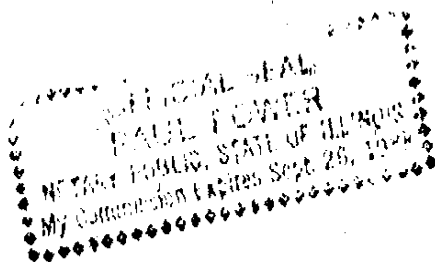 OFFICIAL SEAL
PAUL
NOTARY PUBLIC, STATE OF ILLINOIS
My Commission Expires Sept. 26,